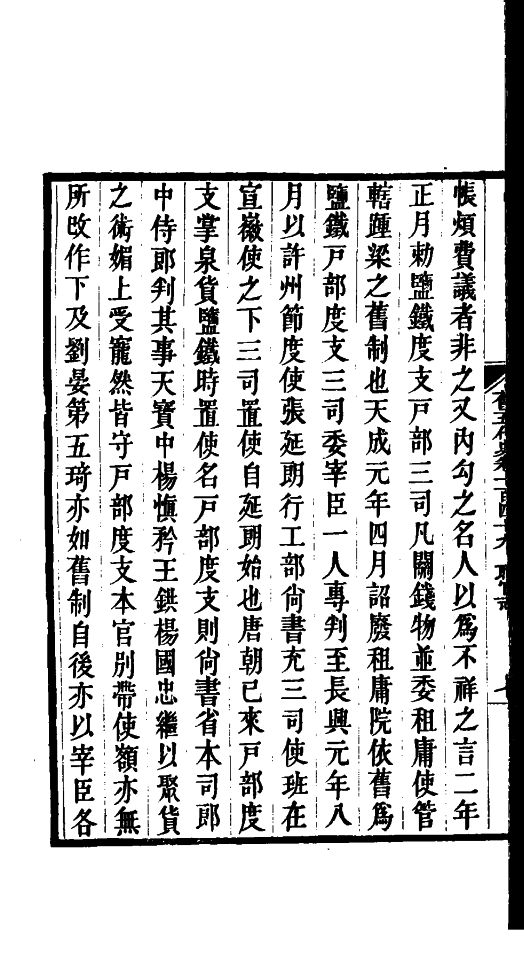 帳煩費議者非之又內勾之名人以爲不祥之言二年
正月勅鹽鐵度支戸部三司凡關錢物並委租庸使管
轄踵梁之舊制也天成元年四月詔廢租庸院依舊爲
鹽鐵戸部度支三司委宰臣一人專判至長興元年八
月以許州節度使張延朗行工部尙書充三司使班在
宣徽使之下三司置使自延朗始也唐朝已來戸部度
支掌泉貨鹽鐵時置使名戸部度支則尙書省本司郎
中侍郎判其事天寶中楊愼矜王鉷楊國忠繼以聚貨
之術媚上受寵然皆守戸部度支本官别帶使額亦無
所改作下及劉晏第五琦亦如舊制自後亦以宰臣各